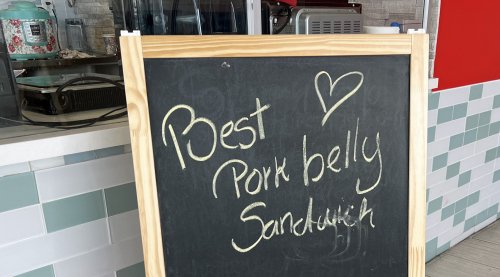 Best
Pork belly
Sandwich